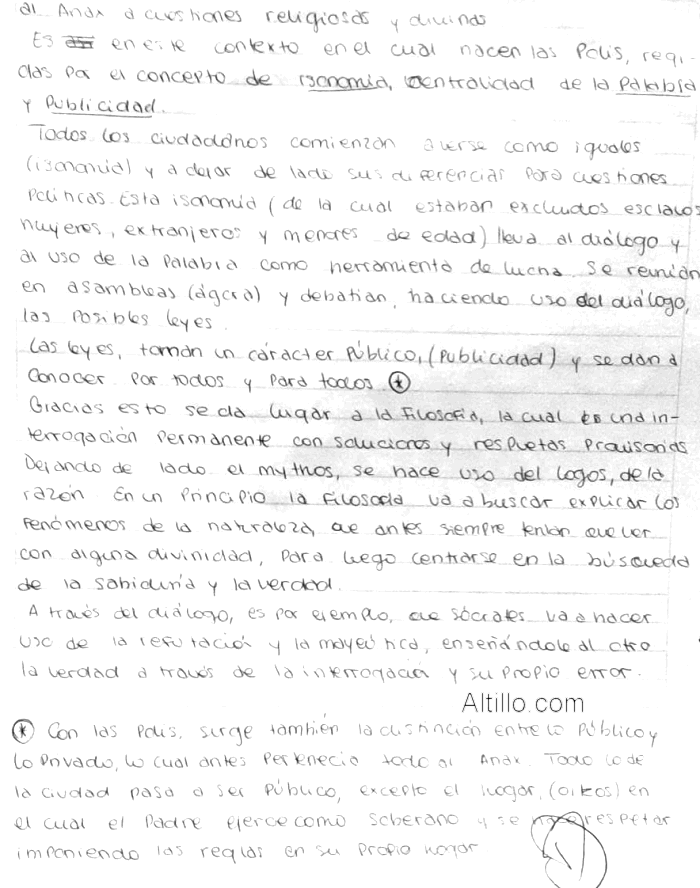 al Anax a cuestiones religiosas y divinas
Es en este contexto en el cual nacen las Polis, regi-
das por el concepto de isonomia, centralidad de la Palabra
y Publicidad.
Todos los ciudadanos comienzan a verse como iguales
(isonomia) y a dejar de lado sus diferencias para cuestiones
Politicas. Esta isonomia (de la cual estaban excluidos esclavos
mujeres, extranjeros y menores de edad) lleva al diálogo y
al uso de la Palabra como herramienta de lucha. Se reunian
en asambleas (ágora) y debatian, haciendo uso del dialogo,
las Posibles leyes.
Las leyes, toman un cárácter Público, (Publicidad) y se dan a
Conocer Por todos y Para todos *
Gracias esto se da lugar a la Filosofía, la cual es una in-
terrogación Permanente con soluciones y respuetas Provisorias
Dejando de lado el mythos, se hace uso del logos, de la
razón En un Principio la Filosofia va a buscar explicar los
Fenómenos de la naturaleza, que antes siempre tenian que ver
con alguna divinidad, Para luego centrarse en la búsqueda
de la Sabiduría y la verdad.
A través del diálogo, es por ejemplo, que Sócrates va a hacer
uso de la refutación y la mayeútica, enseñándole al otro
la verdad a través de la interrogación y su propio error.
Altillo.com
* Con las Polis, surge también la distinción entre lo Público y
lo Privado, lo cual antes Pertenecia todo al Anax. Todo lo de
la ciudad pasa a ser Público, excepto el hogar, (oikos) en
el cual el Padre ejerce como Soberano y se hace respetar
imponiendo las reglas en su Propio hogar